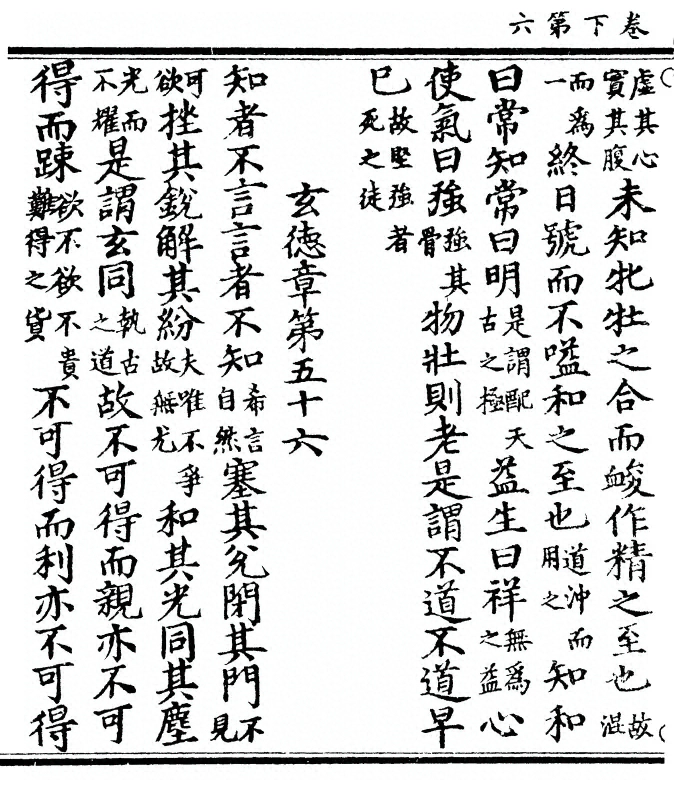 卷下第六
虛其心實其腹未知牝牡之合而䘒作精之至也故混
而為一終日號而不嗌和之至也道沖而用之知和
曰常知常曰明是謂配天古之極益生曰祥無為之益心
使氣曰強強其骨物壯則老是謂不道不道早
巳故堅強者死之徒
玄德章第五十六
知者不言言者不知希言自然塞其兌閉其門不見
可欲挫其銳解其紛夫唯不爭故無尤和其光同其塵
光而不耀是謂玄同執古之道故不可得而親亦不可
得而踈欲不欲不貴難得之貨不可得而利亦不可得